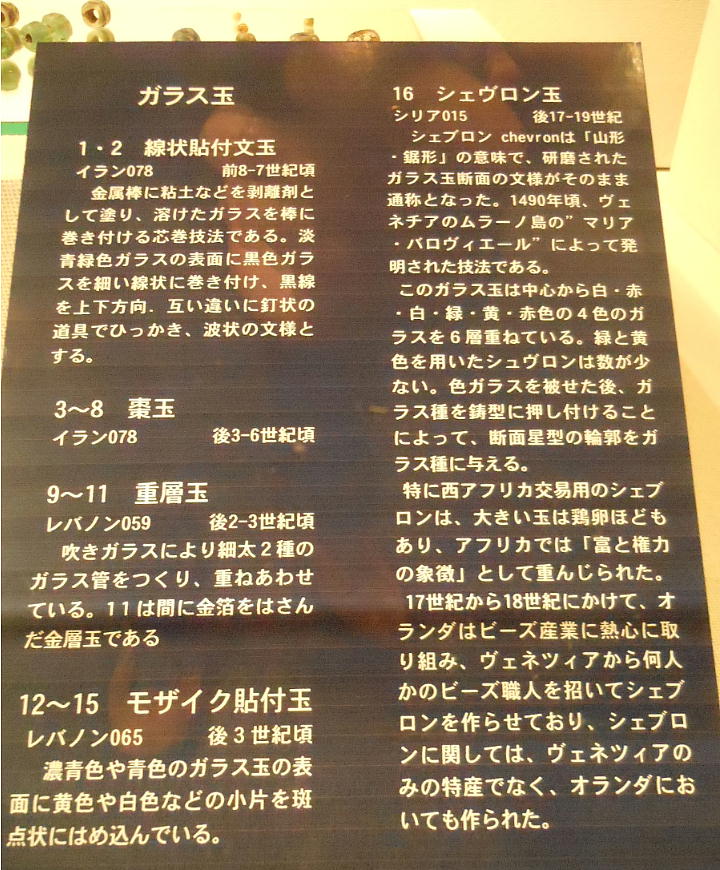 ガラス玉
1・2　線状貼付文玉
イラン078　前8-7世紀頃
金属棒に粘土などを剥離剤と
して塗り、溶けたガラスを棒に
巻き付ける芯巻技法である。淡
青緑色ガラスの表面に黒色ガラ
スを細い線状に巻き付け、黒線
を上下方向．互い違いに釘状の
道具でひっかき、波状の文様と
する。
3～8　棗玉
イラン078　後3-6世紀頃
9～11　重層玉
レバノン059　後2-3世紀頃
吹きガラスにより細太２種の
ガラス管をつくり、重ねあわせ
ている。１１は間に金箔をはさん
だ金層玉である
12～15　モザイク貼付玉
レバノン065　後３世紀頃
濃青色や青色のガラス玉の表
面に黄色や白色などの小片を斑
点状にはめ込んでいる。
16　シェヴロン玉
シリア015　後17-19世紀
シェブロン chevronは「山形
・鋸形」の意味で、研磨された
ガラス玉断面の文様がそのまま
通称となった。1490年頃、ヴェ
ネチアのムラーノ島の”マリア
・バロヴィエール”によって発
明された技法である。
このガラス玉は中心から白・赤
・白・緑・黄・赤色の４色のガ
ラスを６層重ねている。緑と黄
色を用いたシュヴロンは数が少
ない。色ガラスを被せた後、ガ
ラス種を鋳型に押し付けること
によって、断面星型の輪郭をガ
ラス種に与える。
特に西アフリカ交易用のシェブ
ロンは、大きい玉は鶏卵ほども
あり、アフリカでは「富と権力
の象徴」として重んじられた。
17世紀から18世紀にかけて、オ
ランダはビーズ産業に熱心に取
り組み、ヴェネツィアから何人
かのビーズ職人を招いてシェブ
ロンを作らせており、シェブロ
ンに関しては、ヴェネツィアの
みの特産でなく、オランダにお
いても作られた。